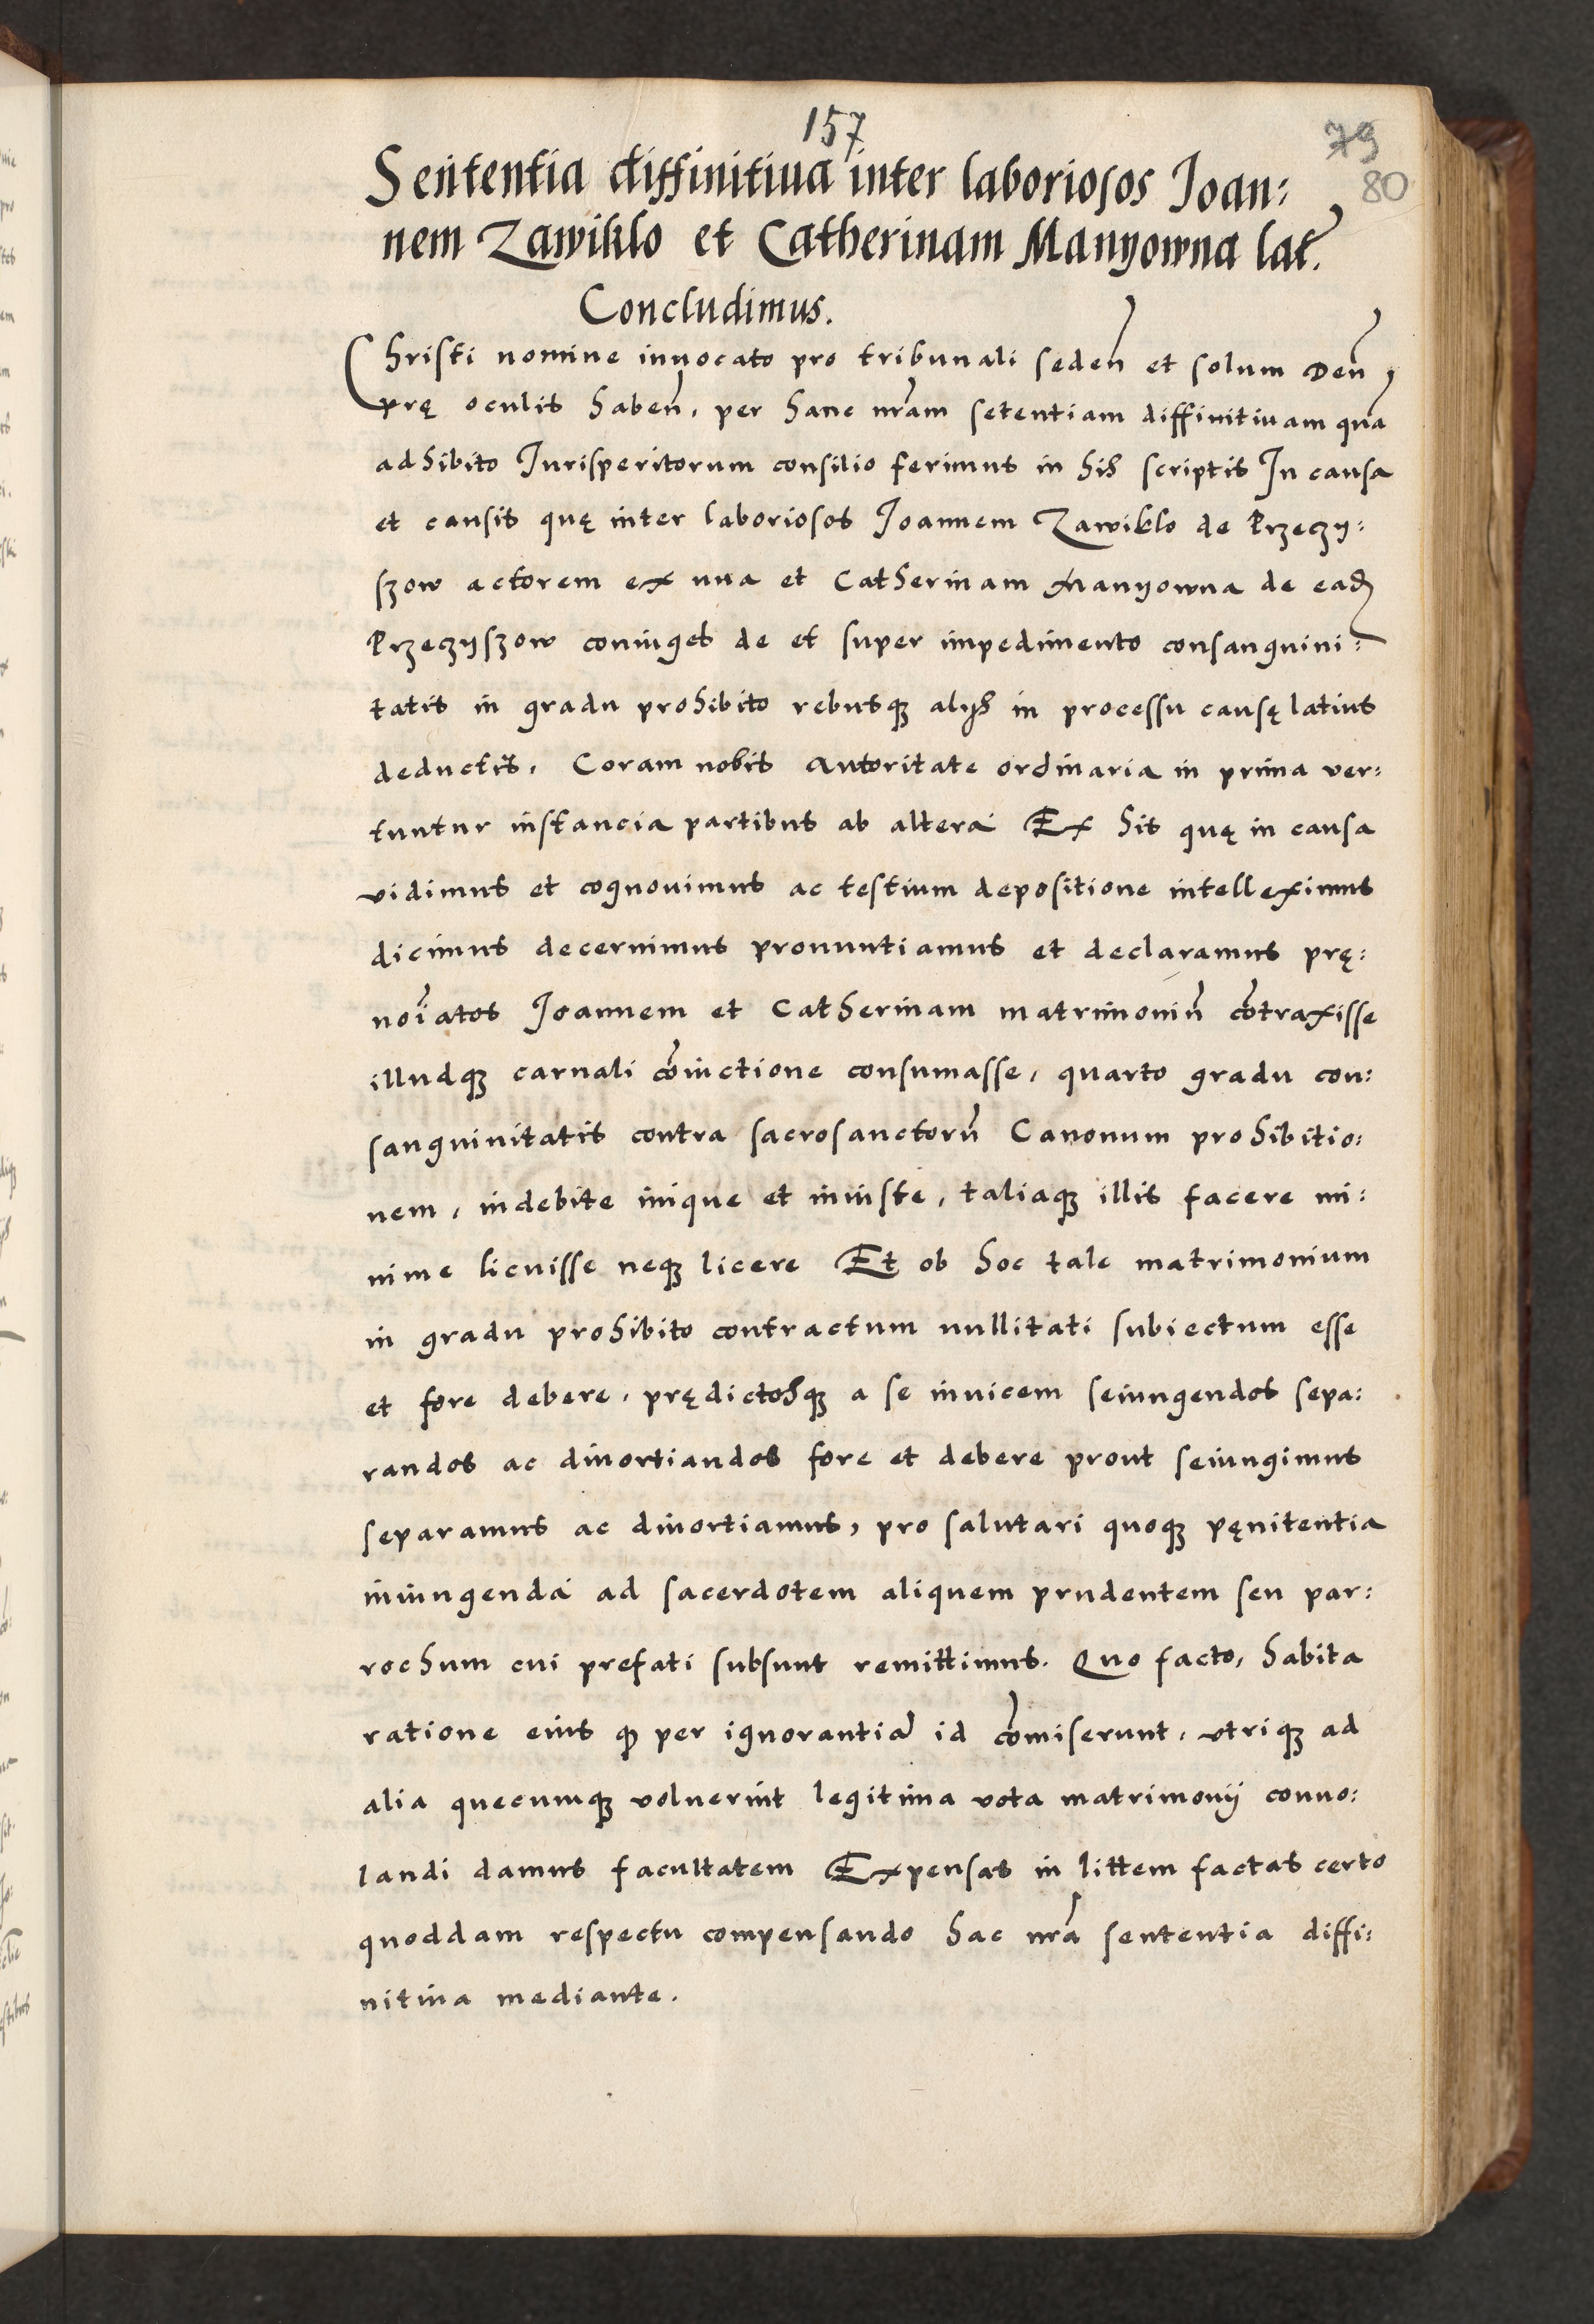 157
79
80
Sententia diffinitiua inter laboriosos Joan:
nem Zawiklo et Catherinam Manyowna lat.
Concludimus.
Christi nomine inuocato pro tribunali seden̄ et solum Deū
prę oculis haben̄, per hanc nr̄am setentiam diffinitiuam quā
adhibito Jurisperitorum consilio ferimus in his scriptis In causa
et causis quę inter laboriosos Joannem Zawiklo de Przeczy:
szow actorem ex una et Catherinam Manyowna de eadꝫ
Przeczyszow coniuges de et super impedimento consanguini:
tatis in gradu prohibito rebusqꝫ alijs in processu causę latius
deductis, Coram nobis Autoritate ordinaria in prima ver:
tuntur instancia partibus ab altera Ex his quę in causa
vidimus et cognouimus ac testium depositione intelleximus
dicimus decernimus pronuntiamus et declaramus prę:
noīatos Joannem et Catherinam matrimoniū cōtraxisse
illudqꝫ carnali cōiuctione consumasse, quarto gradu con:
sanguinitatis contra sacrosanctorū Canonum prohibitio:
nem, indebite inique et iniuste, taliaqꝫ illis facere mi:
nime licuisse neqꝫ licere Et ob hoc tale matrimonium
in gradu prohibito contractum nullitati subiectum esse
et fore debere, prędictosqꝫ a se inuicem seiungendos sepa:
randos ac diuortiandos fore et debere prout seiungimus
separamus ac diuortiamus, pro salutari quoqꝫ pęnitentia
iniungenda ad sacerdotem aliquem prudentem seu par:
rochum cui prefati subsunt remittimus. Quo facto, habita
ratione eius ꝙ per ignorantiā id cōmiserunt, vtriqꝫ ad
alia quecumqꝫ voluerint legitima vota matrimonij conuo:
landi damus facultatem Expensas in littem factas certo
quoddam respectu compensando hac nr̄a sententia diffi:
nitiua mediante.